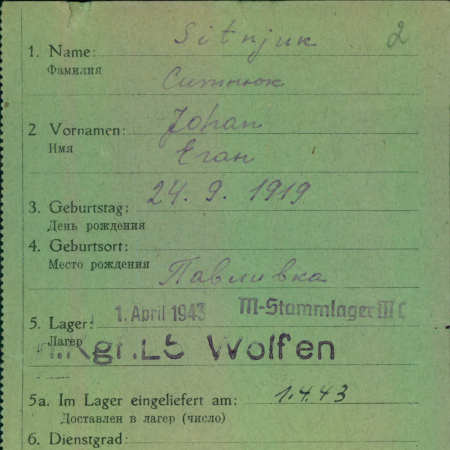 2
1. Name: Sitnjuk
Фамилия Ситнюк
2 Vornamen: Johan
Имя Еган
24. 9. 1919
3. Geburtstag:
День рождения
4. Geburtsort:
Место рождения Павливка
1. April 1943 M-Stammlager III C
5. Lager:
Лагер Kgf. L5 Wolfen
5a. Im Lager eingeliefert am: 1.4.43
Доставлен в лагер (число)
6. Dienstgrad: